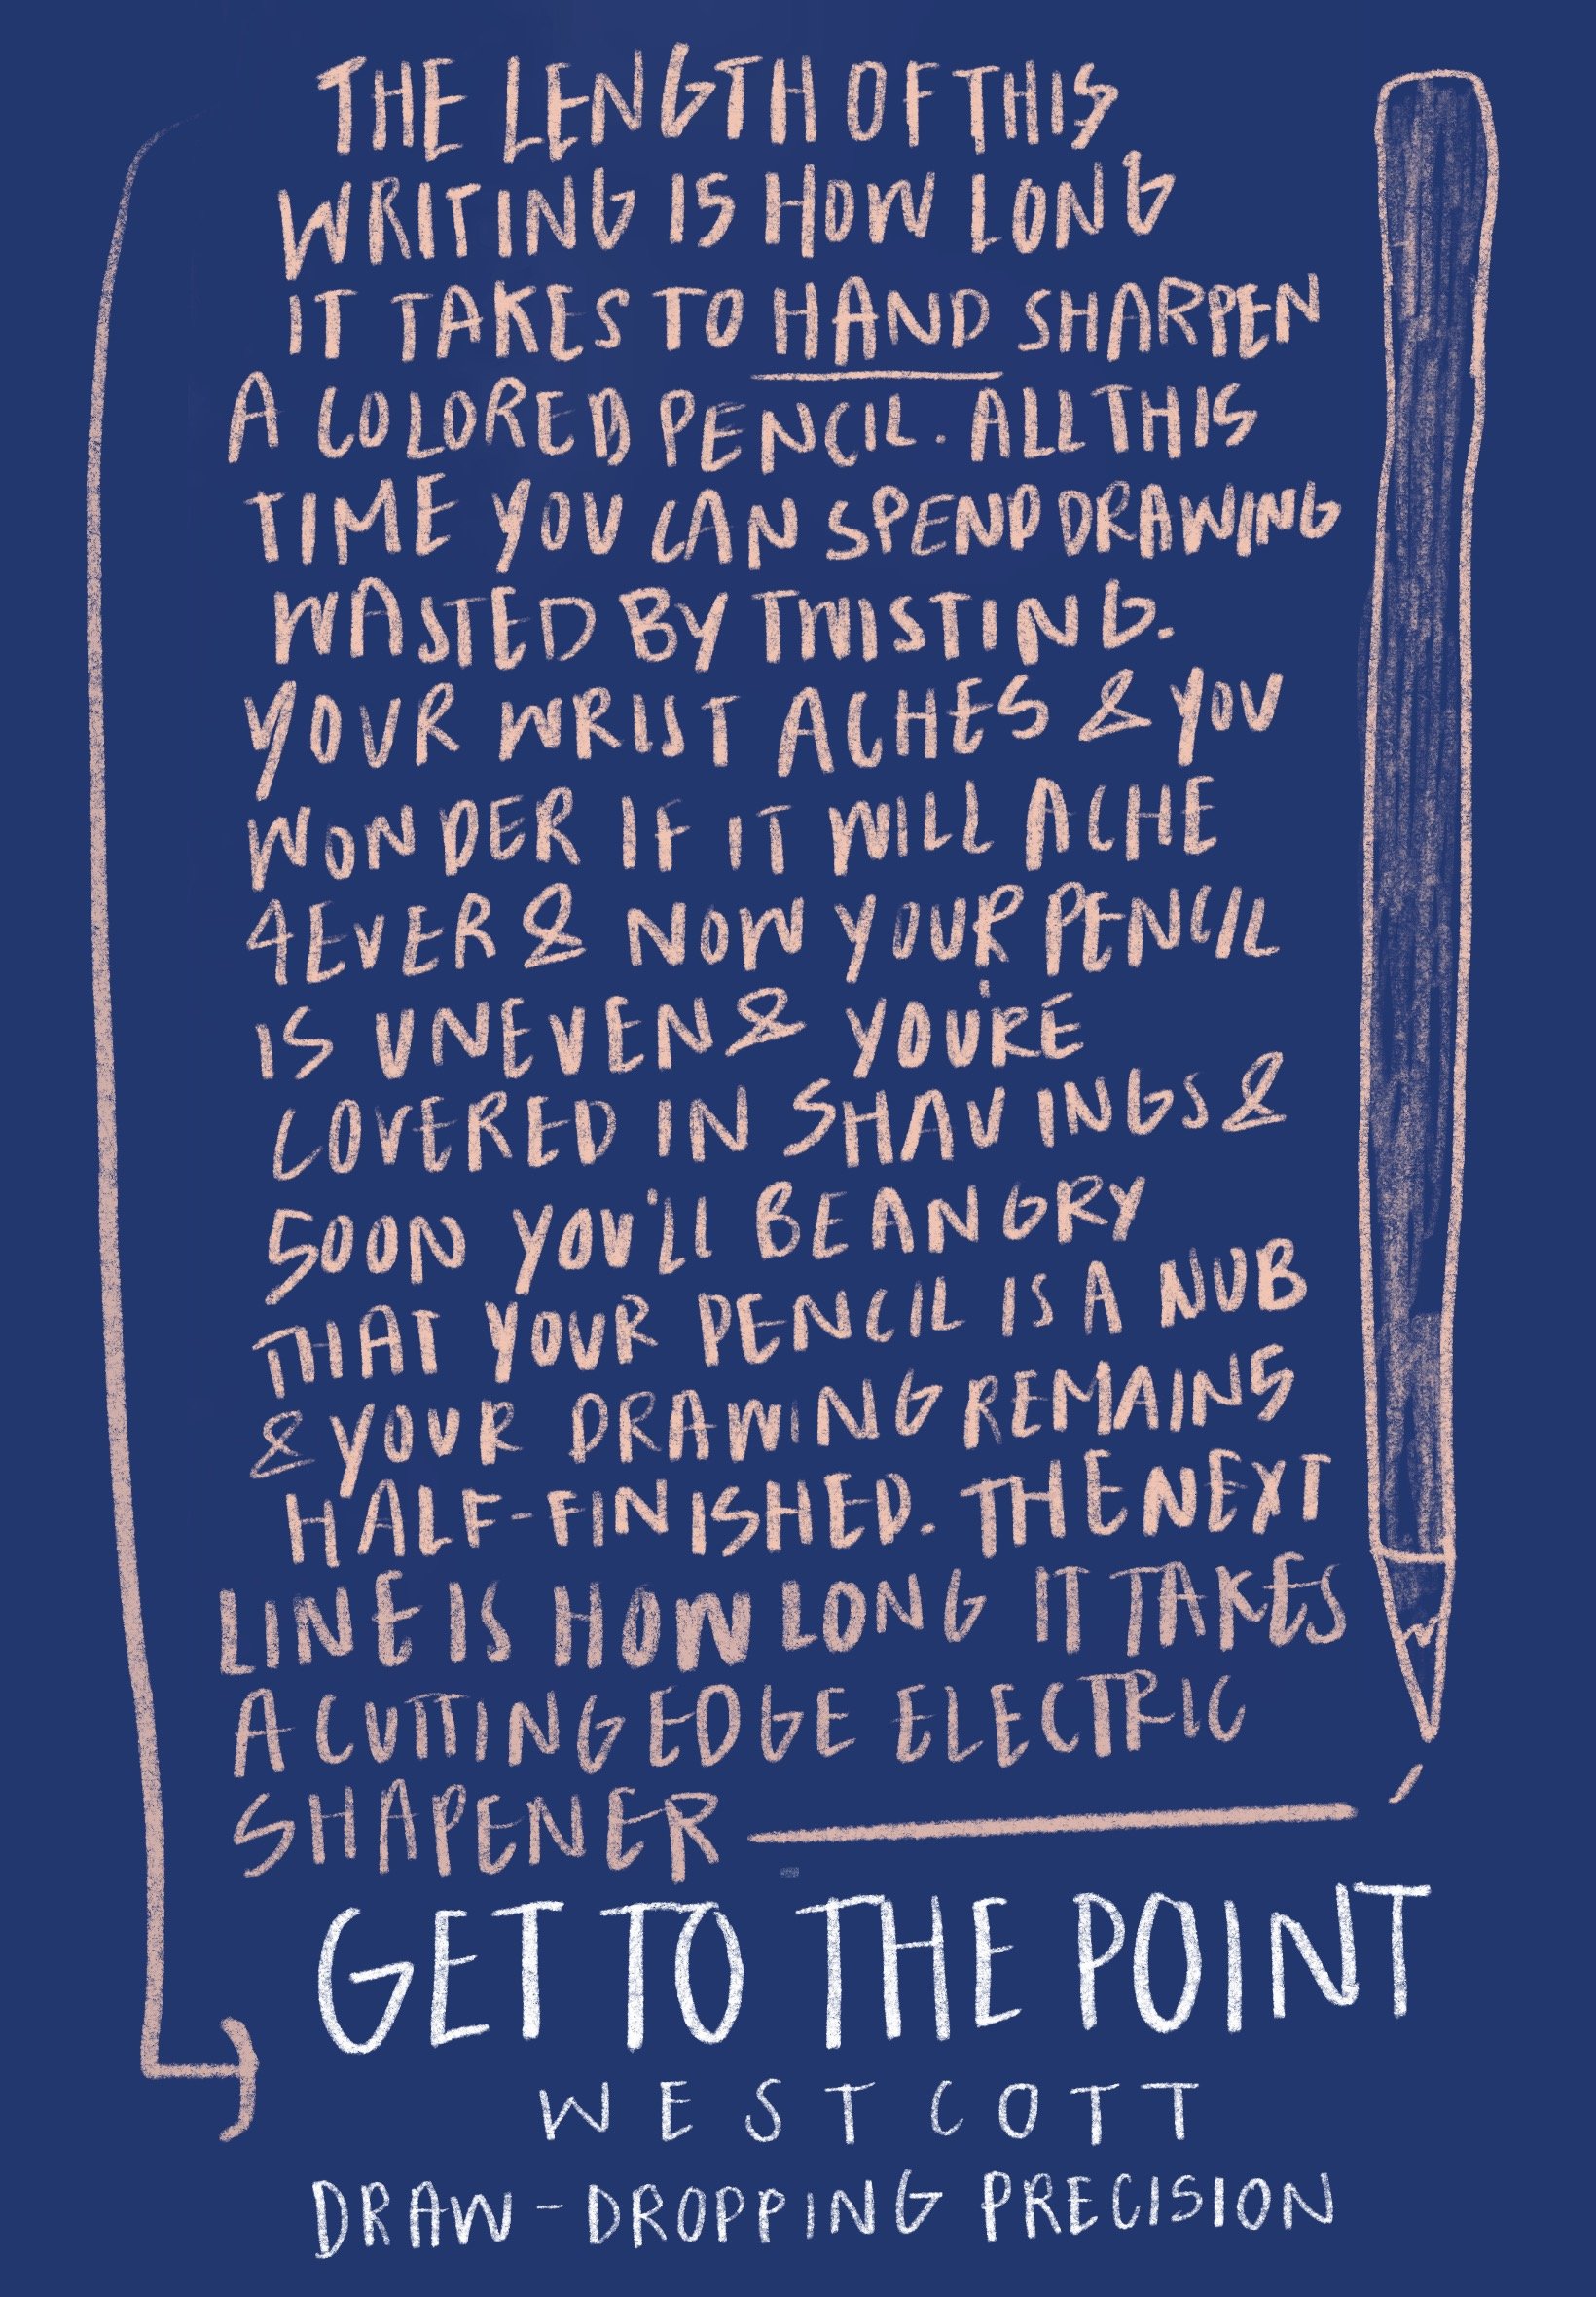 THE LENGTH OF THIS
WRITING IS HOW LONG
IT TAKES TO HAND SHARPEN
A COLORED PENCIL. ALL THIS
TIME YOU CAN SPEND DRAWING
WASTED BY TWISTING.
YOUR WRIST ACHES & YOU
WONDER IF IT WILL ACHE
4EVER & NOW YOUR PENCIL
IS UNEVEN & YOU'RE
COVERED IN SHAVINGS &
SOON YOU'LL BE ANGRY
THAT YOUR PENCIL IS A NUB
& YOUR DRAWING REMAINS
HALF-FINISHED. THE NEXT
LINE IS HOW LONG IT TAKES
A CUTTING EDGE ELECTRIC
SHAPENER
GET TO THE POINT
WESTCOTT
DRAW-DROPPING PRECISION